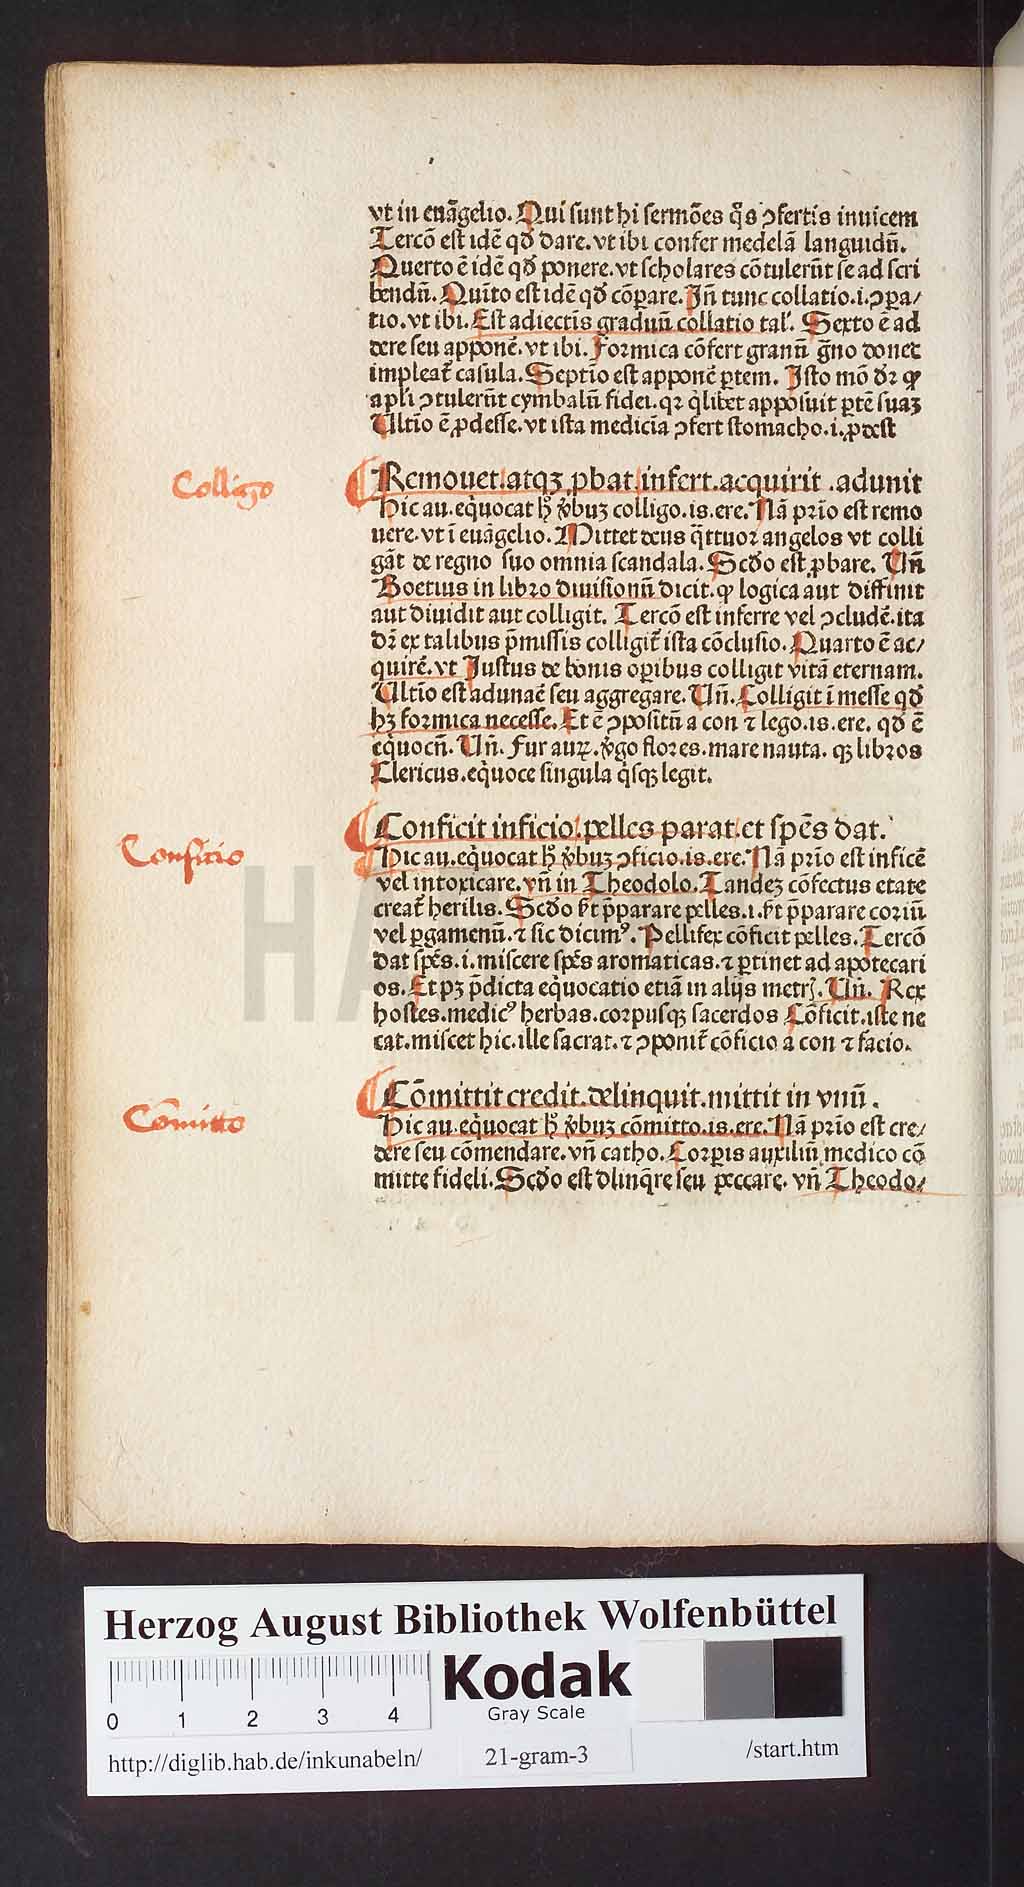 vt in euãgelio. Qui sunt hi sermões q̃s ꝯfertis inuicem
Tercõ est idẽ qď dare. vt ibi confer medelã languidũ.
Quarto ẽ idẽ qď ponere. vt scholares cõtulerũt se ad scri
bendũ. Quĩto est idẽ qď cõpare. Jñ tunc collatio .i. ꝯpa/
tio. vt ibi. Est adiectiis graduũ collatio tal'. Sexto ẽ ad
dere seu apponẽ. vt ibi. Formica cõfert granũ g̃no donec
impleat̃ casula. Septĩo est apponẽ ꝑtem. Jsto mõ dr̃ ꝙ
apl'i ꝯtulerũt cymbalũ fidei. qr q̃libet apposuit ꝑtẽ suaꝫ
Vltĩo ẽ ꝓdesse. vt ista medicia ꝯfert stomacho .i. ꝓdest
Colligo
Remouet atqꝫ ꝓbat infert. acquirit .adunit
Hic au. eq̃uocat h̃ ṽbuꝫ colligo .is.ere. Nã pr̃io est remo
uere. vt ĩ euãgelio. Mittet deus q̃ttuor angelos vt colli
gãt de regno suo omnia scandala. Scďo est ꝓbare. Vñ
Boetius in libro diuisionũ dicit. ꝙ logica aut diffinit
aut diuidit aut colligit. Tercõ est inferre vel ꝯcludẽ. ita
dr̃ ex talibus p̃missis colligit̃ ista cõclusio. Quarto ẽ ac/
quirẽ. vt Justus de bonis oꝑibus colligit vitã eternam.
Vltĩo est adunaẽ seu aggregare. Vñ. Colligit ĩ messe qď
hꝫ formica necesse. Et ẽ ꝯpositũ a con ⁊ lego .is.ere. qď ẽ
eq̃uocũ. Vñ. Fur auꝝ. ṽgo flores. mare nauta. qꝫ libros
Clericus. eq̃uoce singula q̃sqꝫ legit.
Conficio
Conficit inficio. pelles parat. et spẽs dat.
Hic au. eq̃uocat h̃ ṽbuꝫ ꝯficio .is.ere. Nã pr̃io est inficẽ
vel intoxicare. vñ in Theodolo. Tandeꝫ cõfectus etate
creat̃ herilis. Scďo ẽt p̃parare pelles .i. ẽt p̃parare coriũ
vel ꝑgamenũ. ⁊ sic dicimꝰ. Pellifex cõficit pelles. Tercõ
dat spẽs .i. miscere spẽs aromaticas. ⁊ ꝑtinet ad apotecari
os. Et pꝫ p̃dicta eq̃uocatio etiã in alijs metrꝭ. Vñ. Rex
hostes. medicꝰ herbas. corpusqꝫ sacerdos Cõficit. iste ne
cat. miscet hic. ille sacrat. ⁊ ꝯponit̃ cõficio a con ⁊ facio.
Cõmitto
Cõmittit credit. delinquit. mittit in vnũ.
Hic au. eq̃uocat h̃ ṽbuꝫ cõmitto .is.ere. Nã pr̃io est cre/
dere seu cõmendare. vñ catho. Corꝑis auxiliũ medico cõ
mitte fideli. Scďo est dlinq̃re seu peccare. vñ Theodo/
HAB
Herzog August Bibliothek Wolfenbüttel
Kodak
Gray Scale
0 1 2 3 4
http://diglib.hab.de/inkunabeln/ 21-gram-3 /start.htm